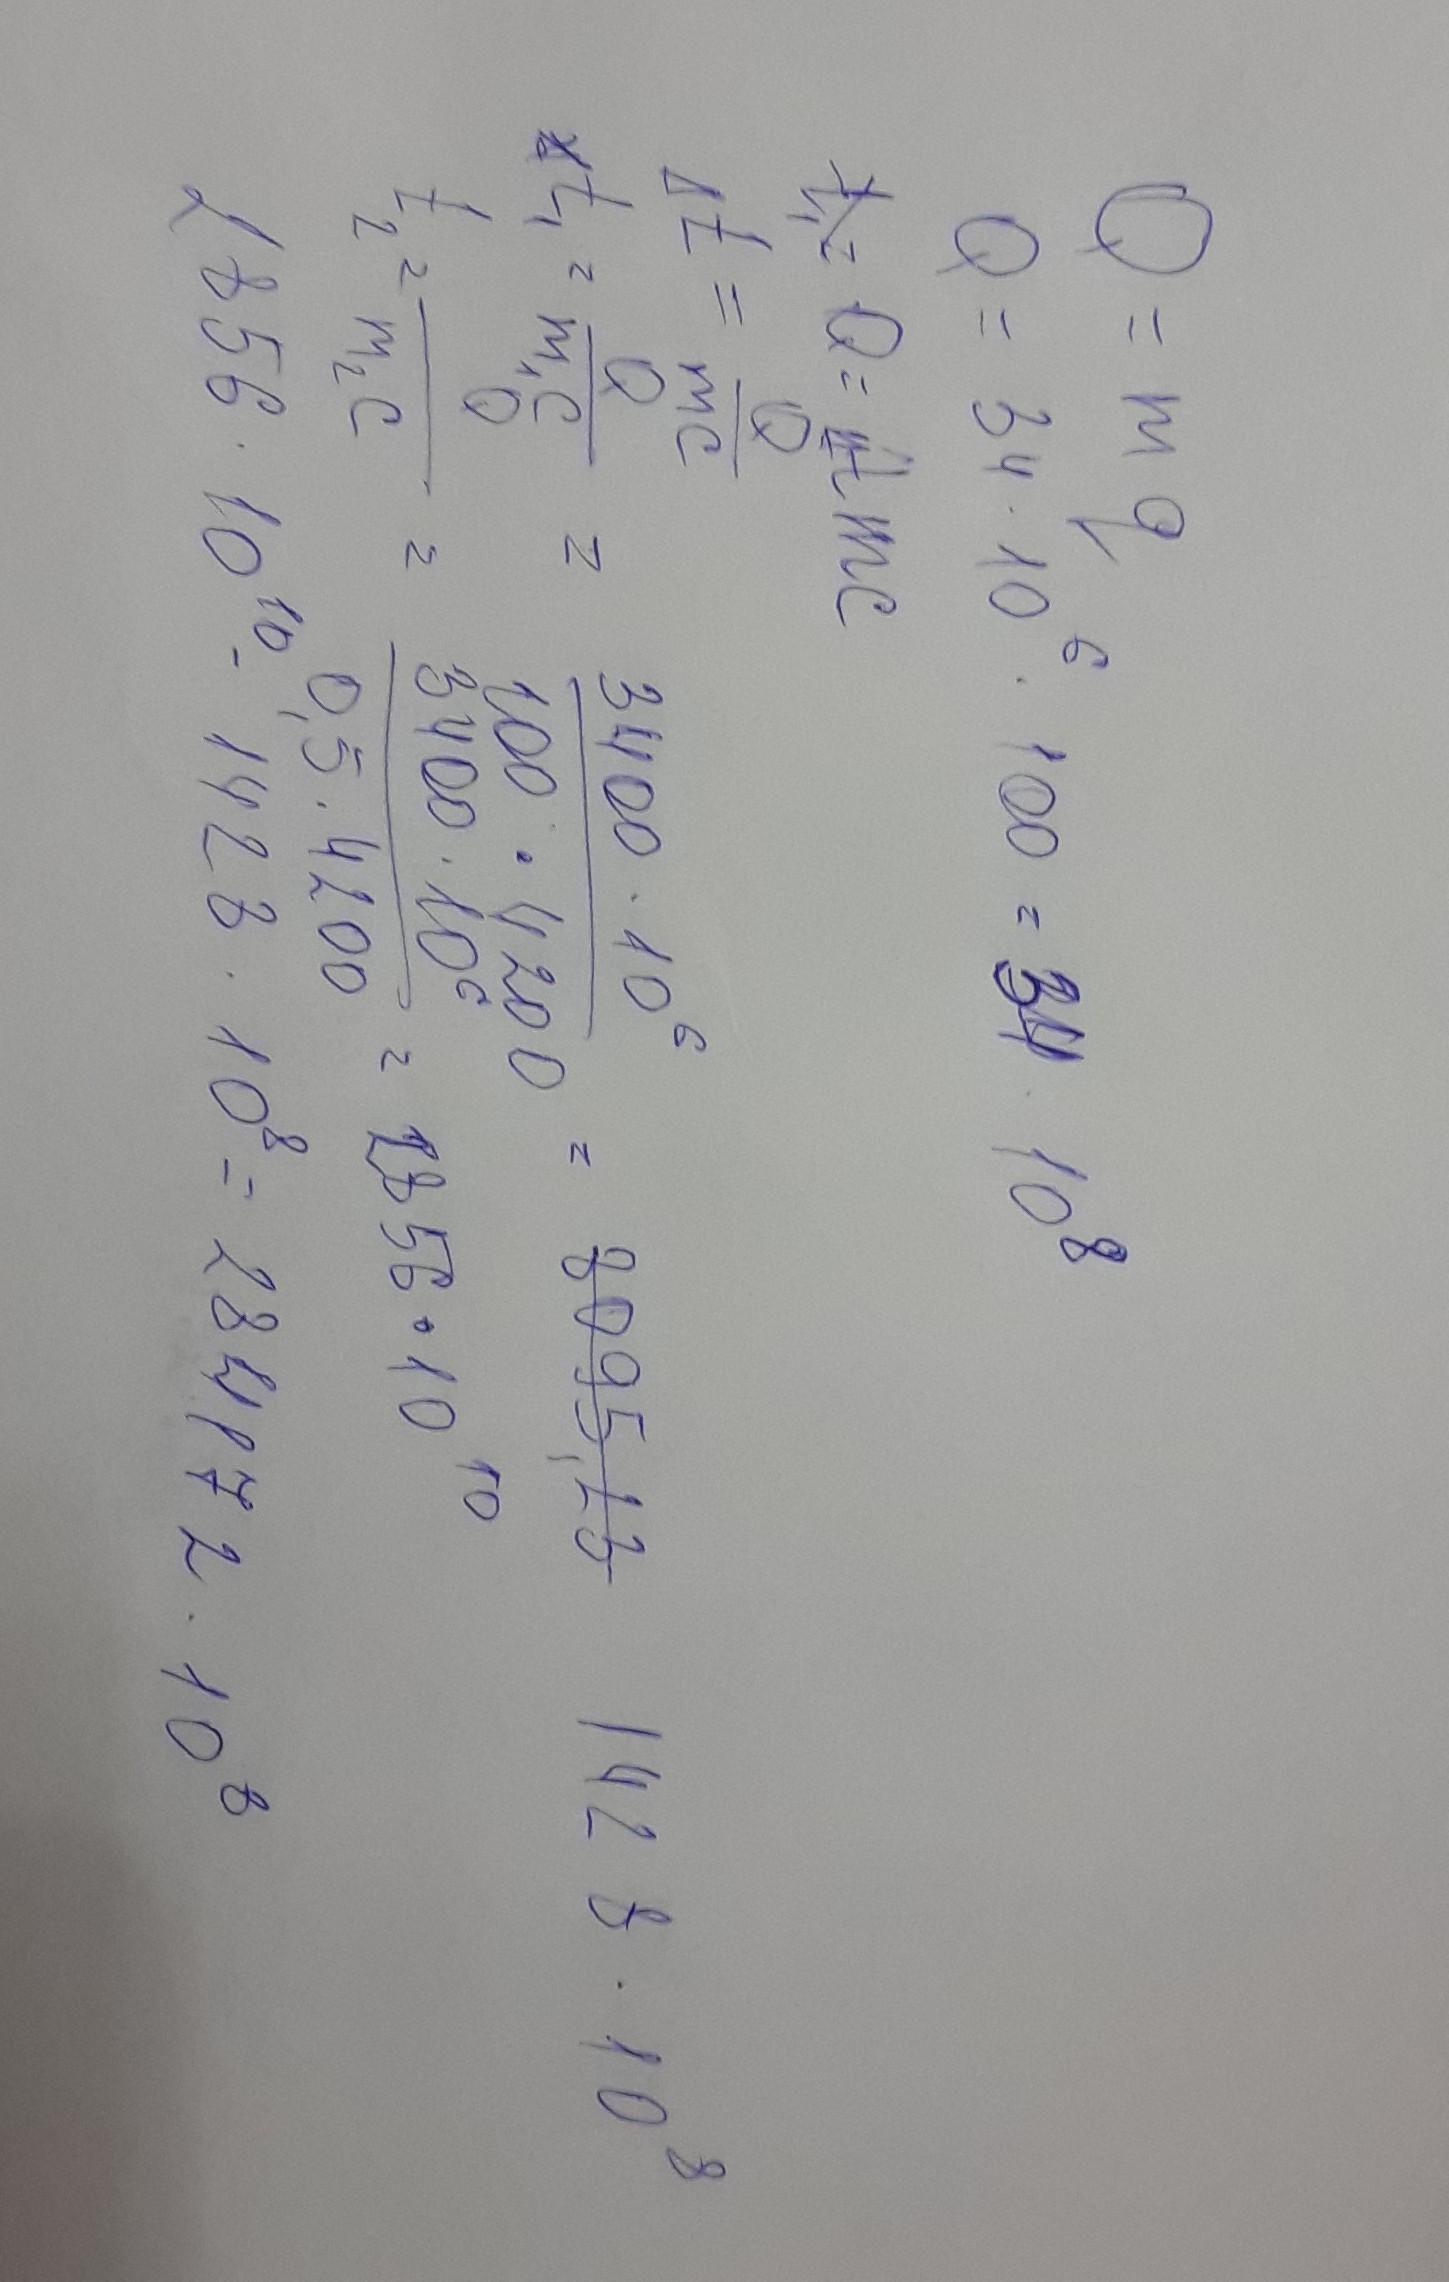 Q = mq
Q = 34 · 10⁶ · 100 = 34 · 10⁸
t₁ = Q = mc
Δt = Q/mc
t₁ = Q/m₁c = 3400 · 10⁶/100 · 4200 = 8095,23 1428 · 10⁸
t₂ = Q/m₂c = 3400 · 10⁶/0,5 · 4200 = 2856 · 10¹⁰
2856 · 10¹⁰ - 1428 · 10⁸ = 284172 · 10⁸